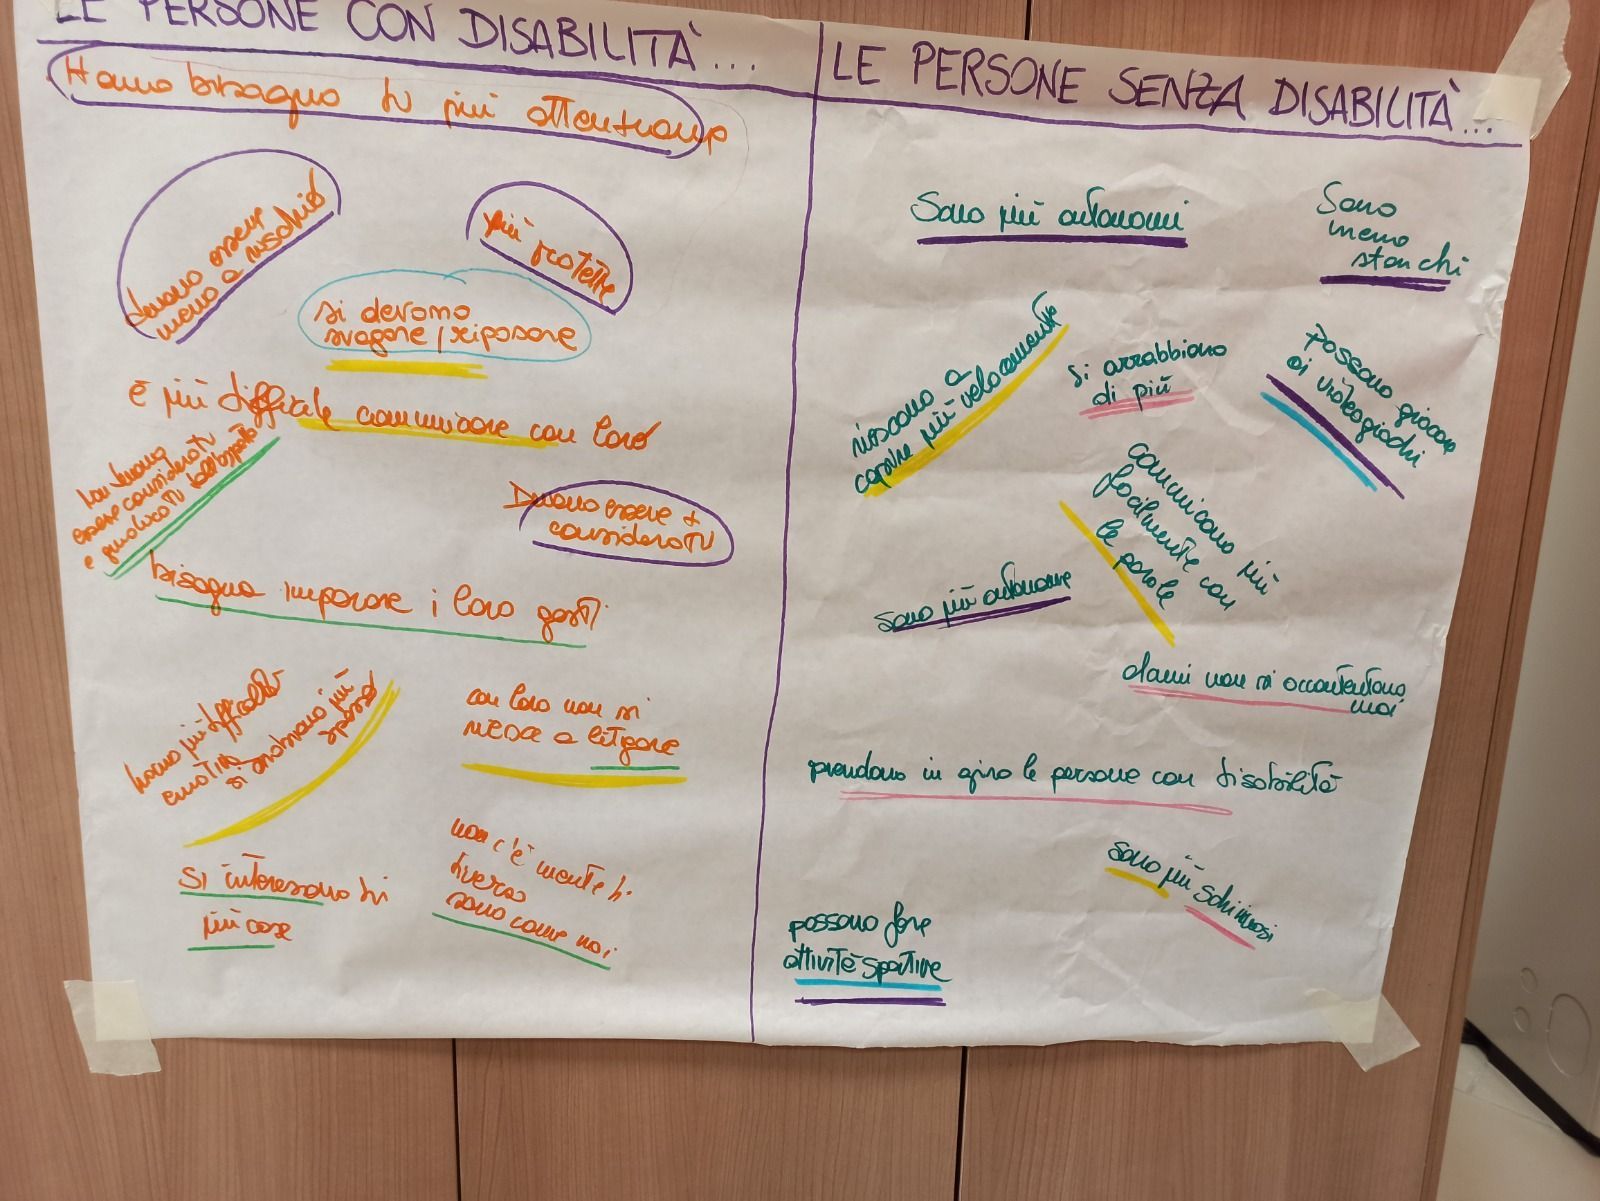 LE PERSONE CON DISABILITÀ...
Hanno bisogno di più attenzione
devono essere
meno a rischio
più
protette
si devono
svagare/riposare
è più difficile comunicare con loro
non devono
essere considerati
e giudicati
Devono essere +
considerati
bisogna imparare i loro gesti
hanno più difficoltà
emotiva
si arrabbiano più
spesso
con loro non si
riesce a litigare
Si interessano di
più cose
non c'è niente di
diverso
sono come noi
LE PERSONE SENZA DISABILITÀ...
Sono più autonomi
Sono
meno
stanchi
riescono a
capire più velocemente
si arrabbiano
di più
Possono giocare
ai videogiochi
comunicano più
facilmente con
le parole
sono più autonome
non si accontentano
mai
prendono in giro le persone con disabilità
sono più schizzinosi
possono fare
attività sportive